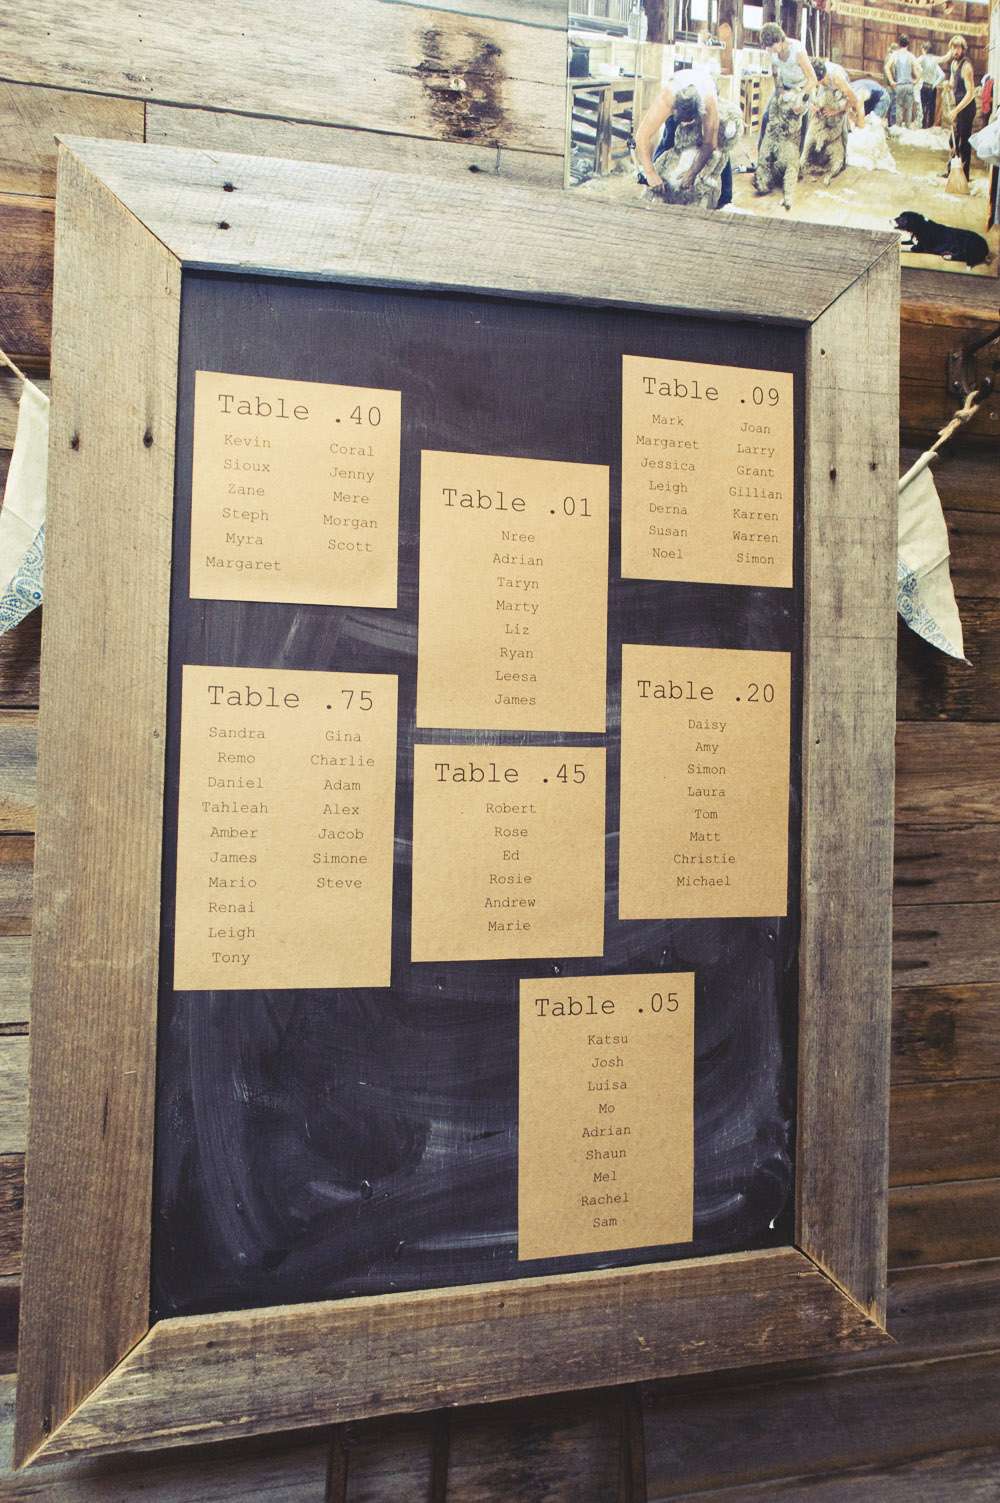 FOR RELIEF OF MUSCULAR
Table .40
Kevin
Sioux
Zane
Steph
Myra
Margaret
Coral
Jenny
Mere
Morgan
Scott
Table .01
Nree
Adrian
Taryn
Marty
Liz
Ryan
Leesa
James
Table .09
Mark
Margaret
Jessica
Leigh
Derna
Susan
Noel
Joan
Larry
Grant
Gillian
Karren
Warren
Simon
Table .75
Sandra
Remo
Daniel
Tahleah
Amber
James
Mario
Renai
Leigh
Tony
Gina
Charlie
Adam
Alex
Jacob
Simone
Steve
Table .45
Robert
Rose
Ed
Rosie
Andrew
Marie
Table .20
Daisy
Amy
Simon
Laura
Tom
Matt
Christie
Michael
Table .05
Katsu
Josh
Luisa
Mo
Adrian
Shaun
Mel
Rachel
Sam